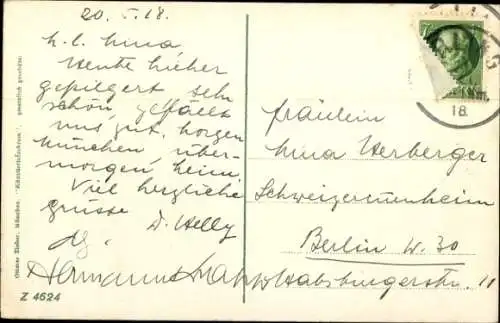 20. 5. 18.
M. l. Luna,
Heute hieher
gepilgert sehr
schön, gefällt
uns gut, morgen
München, über-
morgen heim.
Viel herzliche
Grüsse D. Helly
Fräulein
Luna Herberger
Schweizerinnenheim
Berlin W. 30
Habsburgerstr. 11
Hermann
18
Z 4624
Ottmar Zieher, München. "Künstlerlichtdruck" gesetzlich geschützt